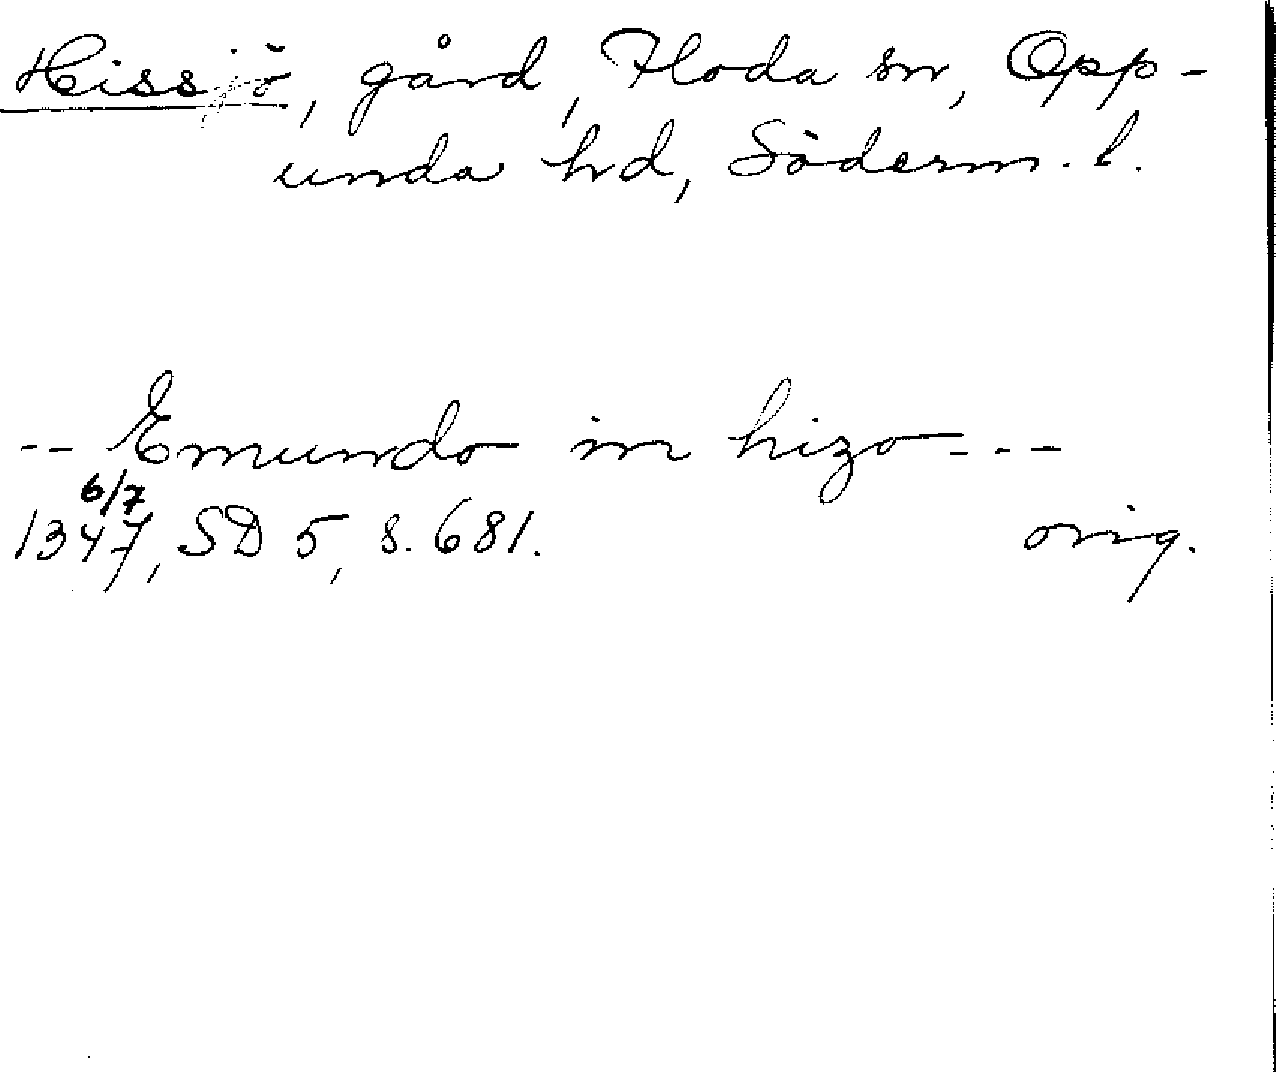 Hissjö, gård, Floda sn, Opp-
unda hd, Söderm. l.
-- Emundo in hizo ---
6/7
1347, SD 5, s. 681. orig.